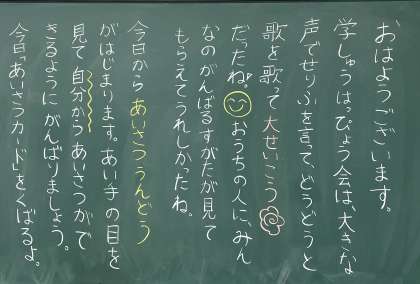 おはようございます。
学しゅうはっぴょう会は、大きな
声でせりふを言って、どうどうと
歌を歌って大せいこう
だったね。おうちの人に、みん
なのがんばるすがたが見て
もらえてうれしかったね。
今日から あいさつうんどう
がはじまります。あい手の目を
見て自分からあいさつがで
きるようにがんばりましょう。
今日「あいさつカード」をくばるよ。